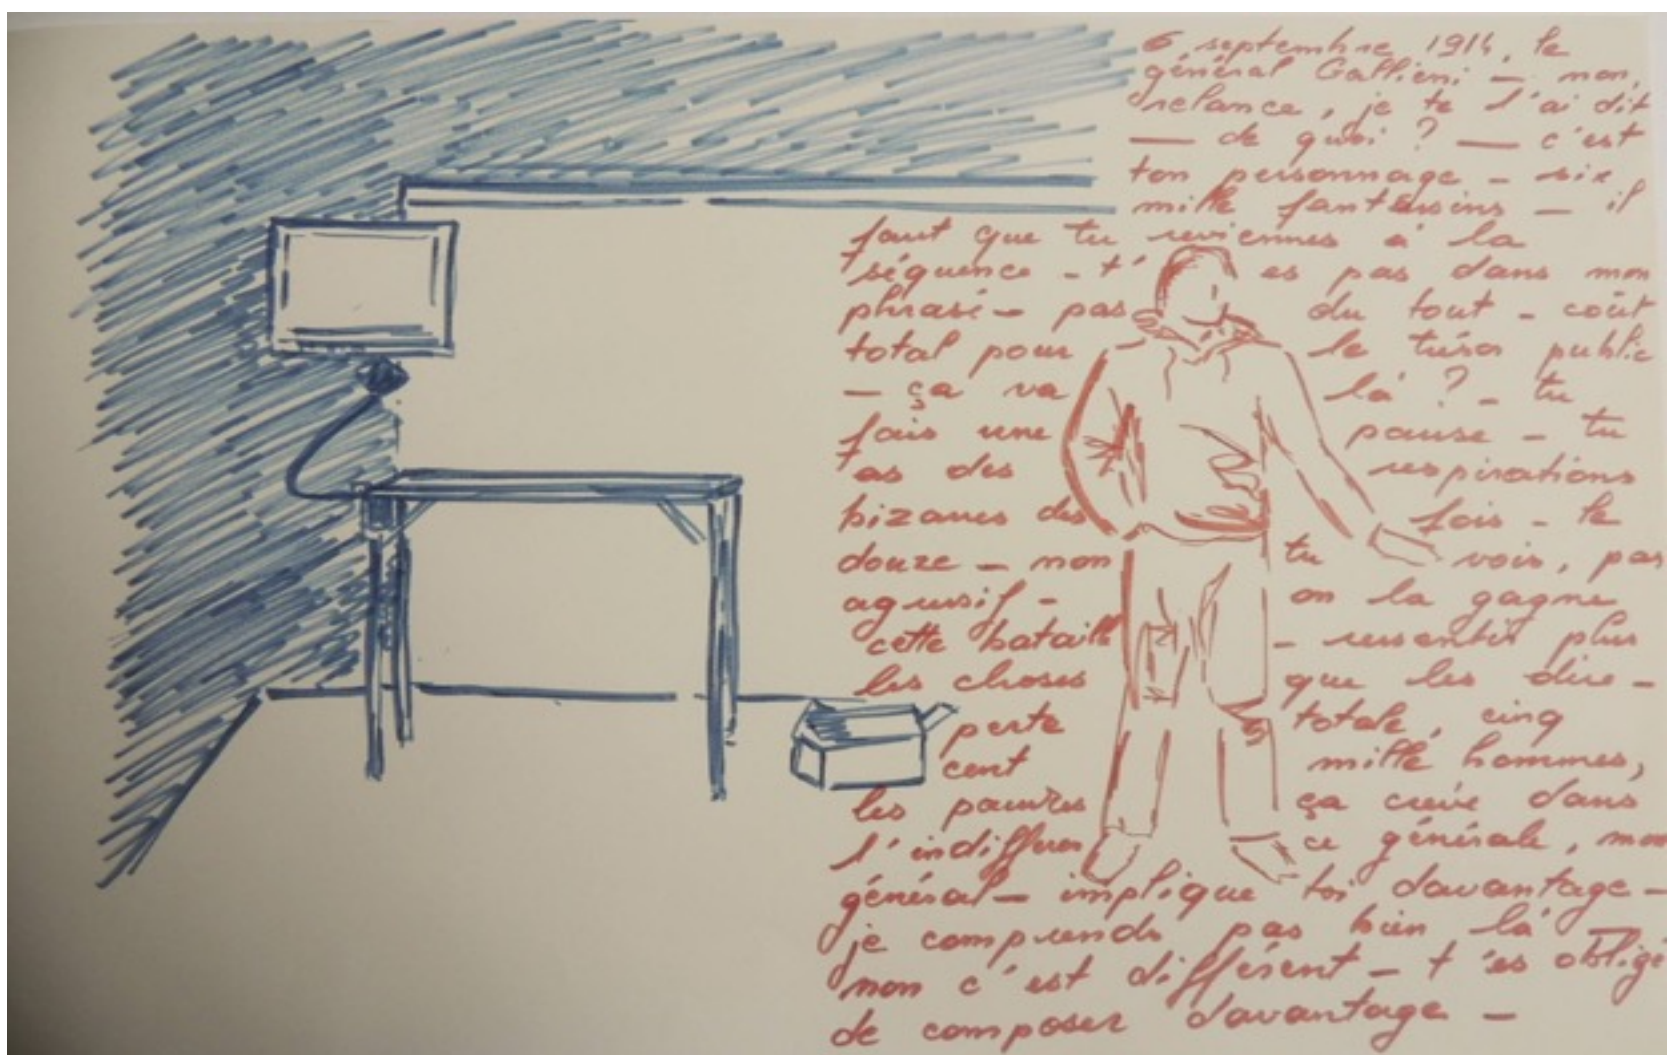 6 septembre 1914, le
général Gallieni – non,
relance, je te l'ai dit
— de quoi ? — c'est
ton personnage – six
mille fantassins – il
faut que tu reviennes à la
séquence – t'es pas dans mon
phrasé – pas du tout – coût
total pour le trésor public
– ça va là ? – tu
fais une pause – tu
as des respirations
bizarres des fois – le
douze – non tu vois, pas
agressif – on la gagne
cette bataille – ressentir plus
les choses que les dire –
perte totale, cinq
cent mille hommes,
les pauvres ça crève dans
l'indifférence générale, mon
général – implique toi davantage –
je comprends pas bien là –
non c'est différent – t'es obligé
de composer davantage –